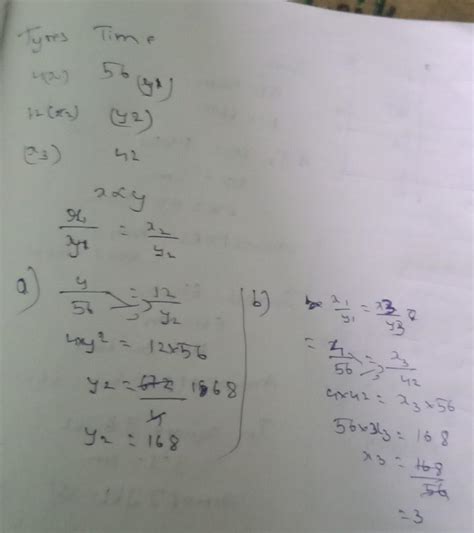 Tyres Time
4(x) 56 (y1)
12(x2) (y2)
(x3) 42
x∝y
x1/y1 = x2/y2
a) 4/56 = 12/y2
4xy2 = 12×56
y2 = 672/4 168
y2 = 168
b) x1/y1 = x3/y3
= 4/56 = x3/42
4×42 = x3×56
56×x3 = 168
x3 = 168/56
= 3